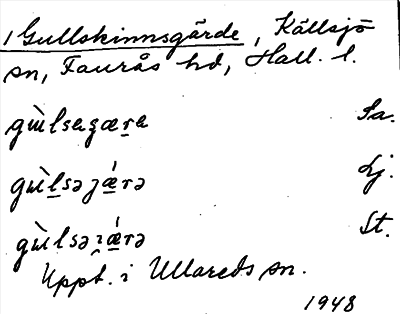 1 Gullskinnsgärde, Källsjö
sn, Faurås hd, Hall. l.
gɯ̀lsagæra Sa.
gɯ̀lsəȷǽrə Lj.
gɯ̀lsəɿǽrə St.
Uppt. i Ullareds sn.
1948